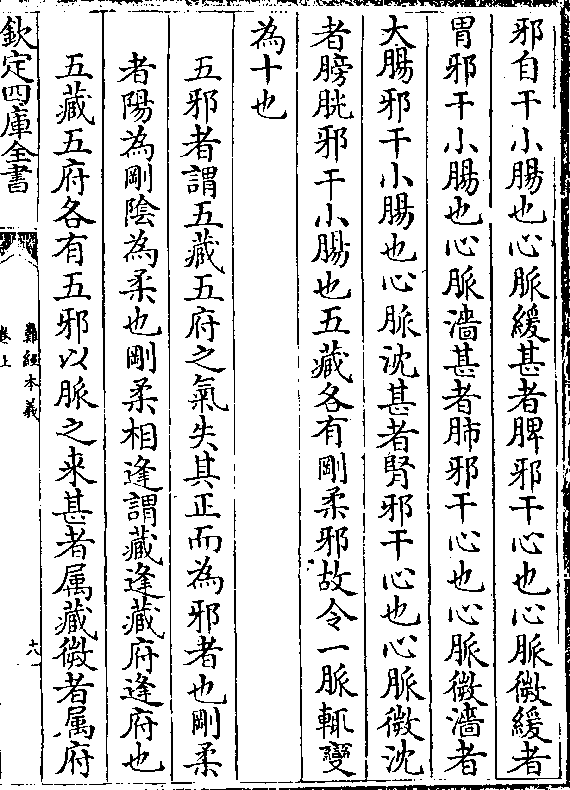 邪自干小腸也心脈緩甚者脾邪干心也心脈微緩者
胃邪干小腸也心脈濇甚者肺邪干心也心脈微濇者
大腸邪干小腸也心脈沈甚者腎邪干心也心脈微沈
者膀胱邪干小腸也五藏各有剛柔邪故令一脈輒變
為十也
五邪者謂五藏五府之氣失其正而為邪者也剛柔
者陽為剛陰為柔也剛柔相逢謂藏逢藏府逢府也
五藏五府各有五邪以脈之来甚者属藏微者属府
欽定四庫全書
難經本義
卷上
十八